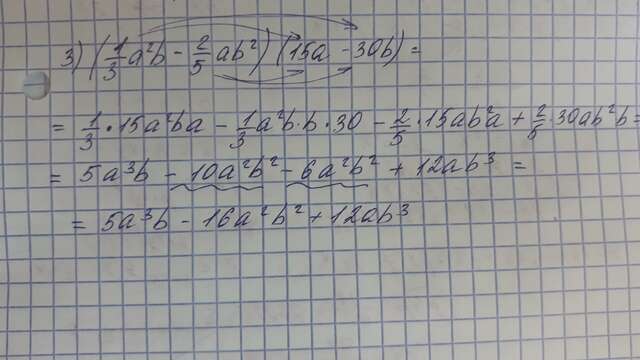 3) (1/3 a²b - 2/5 ab²) (15a - 30b) =
= 1/3 · 15a²ba - 1/3 a²b · b · 30 - 2/5 · 15ab²a + 2/5 · 30ab²b =
= 5a³b - 10a²b² - 6a²b² + 12ab³ =
= 5a³b - 16a²b² + 12ab³